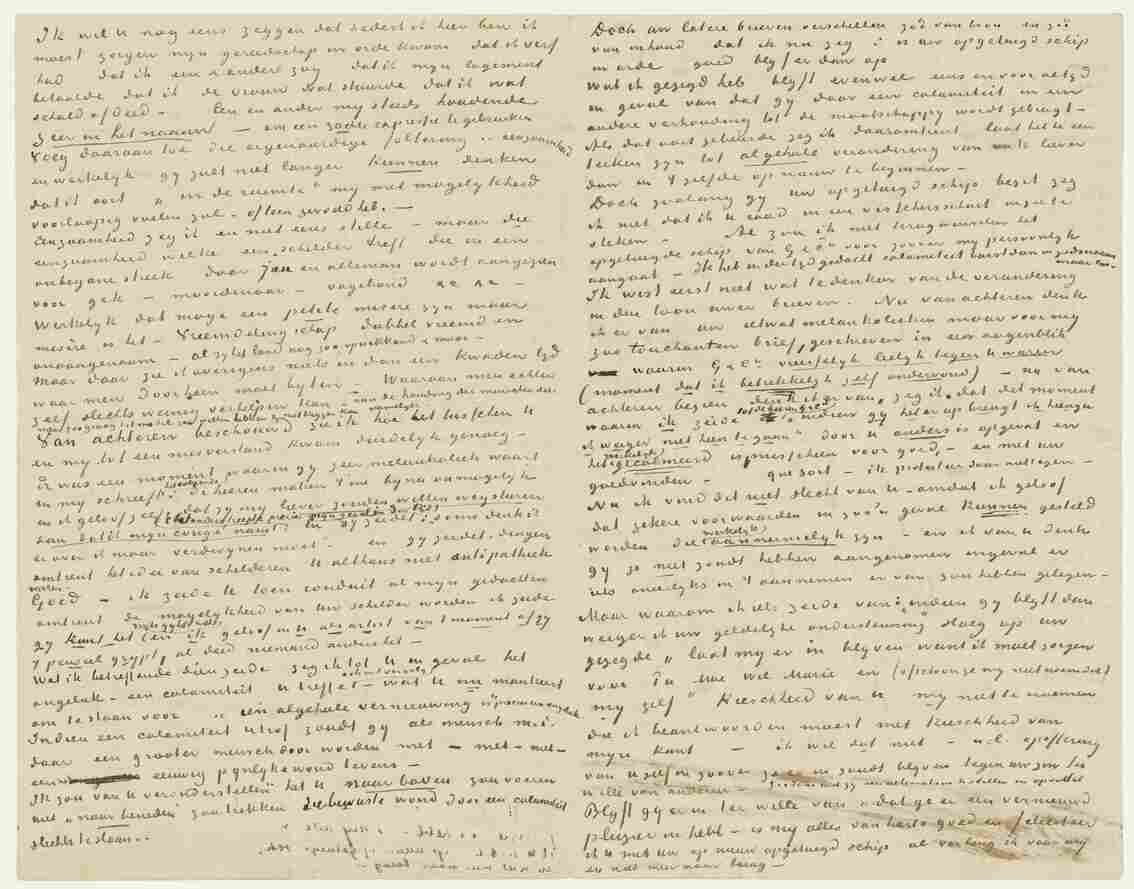 Ik wil u nog eens zeggen dat sedert ik hier ben ik
moest zorgen mijn gereedschap in orde kwam dat ik verf
had dat ik een & ander zag dat ik mijn logement
betaalde dat ik de vrouw wat stuurde dat ik wat
schuld afdeed – Een en ander my steeds houdende
zeer in het nauw – om een zachte expressie te gebruiken
Voeg daaraan toe die eigenaardige foltering – eenzaamheid
en werkelyk gy zult niet langer kunnen denken
dat ik ooit „in de ruimte” my met mogelykheid
voorloopig voelen zal – of toen gevoeld heb. –
Eenzaamheid zeg ik en niet eens stilte – maar die
eenzaamheid welke een schilder treft die in een
onbegane streek door Jan en alleman wordt aangezien
voor gek – moordenaar – vagebond &c &c –
Werkelyk dat moge een petite misère zyn maar
misère is het. Vreemdelingschap dubbel vreemd en
onaangenaam – al zy het land nog zoo opwekkend & mooi –
Maar daar zie ik overigens niets in dan een kwaden tyd
waar men door heen moet byten. Waaraan men echter
zelf slechts weinig verhelpen kan – aan de houding der menschen die
men zoo graag tot model zou willen hebben & niet krygen kan namelyk.
Van achteren beschouwd zie ik hoe het tusschen u
en my tot een misverstand kwam duidelyk genoeg –
Er was een moment waarin gy zeer melankoliek waart
en my schreeft 't volgende: de heeren maken 't me byna onmogelyk
en ik geloof zelfs dat zy my liever zouden willen wegsturen
dan dat ik myn congé nam
En gy zeidet: soms denk ik
er over ik maar verdwynen moet – en gy zeidet dingen
omtrent het idee van schilderen U althans niet antipathiek
waren.
Goed – ik zeide U toen ronduit al mijn gedachten
omtrent de mogelykheid van Uw schilder worden ik zeide
gy kunt het mits gy het wilt, en ik geloof in u als artist van 't moment af gy
't penseel grypt, al deed niemand anders het –
Wat ik betreffende dien zeide zeg ik tot U in geval het
ongeluk – een calamiteit u treffe –
om te slaan voor een algeheele vernieuwing
Indien een calamiteit U trof zoudt gy als mensch m.i.
daar een grooter mensch door worden met – met – met –
een eeuwig pynlyke wond tevens –
Ik zou van u veronderstellen het u naar boven zou voeren
niet „naar beneden” zou trekken die bewuste wond door een calamiteit
slechts te slaan..
Doch uw latere brieven verschillen zóó van toon en zóó
van inhoud dat ik nu zeg: is uw opgetuigd schip
in orde goed blyf er dan op
Wat ik gezegd heb blyft evenwel eens en voor altyd
in geval van dat gy door een calamiteit in een
andere verhouding tot de maatschappy wordt gebragt –
Als dat ooit gebeurde zeg ik daaromtrent laat het te een
teeken zyn tot algeheele verandering van liever
dan in 't zelfde op nieuw te beginnen –
Doch zoolang gy uw opgetuigd schip bezit zeg
ik niet dat ik U raad in een visscherschuit in zee te
steken – Al zou ik niet terugwenschen het
opgetuigde schip van G&Cie voor zoover my persoonlyk
aangaat – Ik heb in der tyd gedacht calamiteit barst dan in godsnaam
maar los –
Ik wist eerst niet wat te denken van de verandering
in den toon uwer brieven. Nu van achteren denk
ik er van uw ietwat melankolieken maar voor my
zoo touchanten brief, geschreven in een oogenblik
waarin G&Cie vreeselyk leelyk tegen U waren
(moment dat ik betrekkelyk zelf ondervond) – nu van
achteren bezien denk ik er van, zeg ik, dat dit moment
waarin ik zeide „indien gy het er op brengt ik
weiger niet heen te gaan” door u anders is opgevat en
het gecalmeerd is misschien voor goed, – en met uw
goedvinden. – Que soit – ik protesteer daar niet tegen –
Nu ik vind dit niet slecht van U – omdat ik geloof
dat zekere voorwaarden in zoo'n geval kunnen gesteld
worden die werkelyk aannemelyk zyn – en ik van U denk
gy ze niet zoudt hebben aangenomen ingeval er
iets oneerlyks in 't aannemen er van zou hebben gelegen –
Maar waarom ik iets zeide van: „indien gy blyft dan
weiger ik uw geldelyke ondersteuning” sloeg op uw
gezegde „laat my er in blyven want ik moet zorgen
voor Pa Moe Wil Marie en (ofschoon ge my niet noemdet)
my zelf” Kieschheid van U my niet te noemen
die ik beantwoorden moest met kieschheid van
myn kant – ik wil dat niet – n.l. opoffering
van u zelf in zoover ge er in zoudt blyven tegen uw zin ter
wille van anderen –
Blyft gy er in ter wille van dat ge er een vernieuwd
pleizier in hebt – is my alles van harte goed en feliciteer
ik u met uw op nieuw opgetuigd schip al verlang ik voor my
er niet meer naar terug –